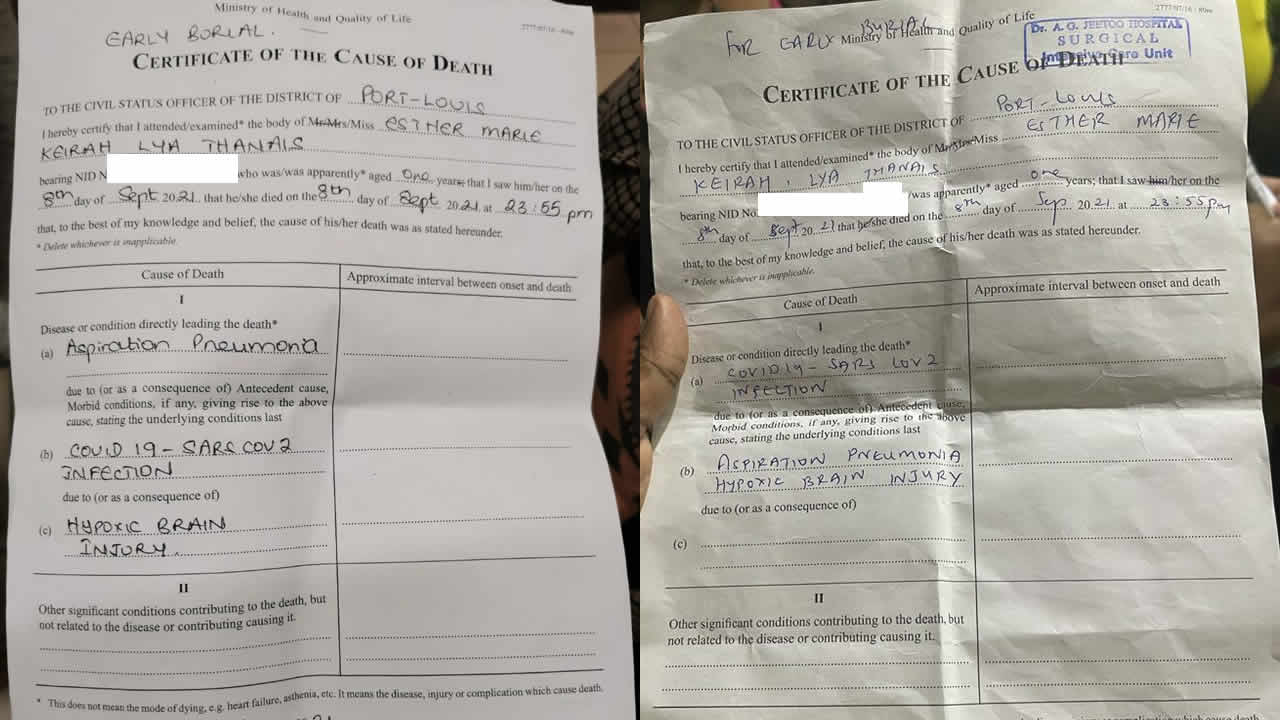 Ministry of Health and Quality of Life
2777/07/16 - 80m
EARLY BURIAL.
CERTIFICATE OF THE CAUSE OF DEATH
TO THE CIVIL STATUS OFFICER OF THE DISTRICT OF PORT-LOUIS
I hereby certify that I attended/examined* the body of Mr/Mrs/Miss ESTHER MARIE
KEIRAH LYA THANAIS
bearing NID N who was/was apparently* aged one years; that I saw him/her on the
8th day of Sept 2021 that he/she died on the 8th day of Sept 2021 at 23:55 pm
that, to the best of my knowledge and belief, the cause of his/her death was as stated hereunder.
* Delete whichever is inapplicable.
Cause of Death
Approximate interval between onset and death
I
Disease or condition directly leading the death*
(a) Aspiration Pneumonia
due to (or as a consequence of) Antecedent cause,
Morbid conditions, if any, giving rise to the above
cause, stating the underlying conditions last
(b) COVID 19 - SARS COV2
INFECTION
due to (or as a consequence of)
(c) HYPOXIC BRAIN
INJURY.
II
Other significant conditions contributing to the death, but
not related to the disease or contributing causing it.
* This does not mean the mode of dying, e.g. heart failure, asthenia, etc. It means the disease, injury or complication which cause death.
2777/07/16 - 80m
For EARLY BURIAL
Ministry of Health and Quality of Life
Dr. A. G. JEETOO HOSPITAL
SURGICAL
Intensive Care Unit
CERTIFICATE OF THE CAUSE OF DEATH
TO THE CIVIL STATUS OFFICER OF THE DISTRICT OF PORT-LOUIS
I hereby certify that I attended/examined* the body of Mr/Mrs/Miss ESTHER MARIE
KEIRAH, LYA THANAIS
bearing NID No. /was apparently* aged one years; that I saw him/her on the
8th day of Sept 2021 that he/she died on the 8th day of Sep 2021 at 23:55pm
that, to the best of my knowledge and belief, the cause of his/her death was as stated hereunder.
* Delete whichever is inapplicable.
Cause of Death
Approximate interval between onset and death
I
Disease or condition directly leading the death*
(a) COVID 19 - SARS COV 2
INFECTION
due to (or as a consequence of) Antecedent cause,
Morbid conditions, if any, giving rise to the above
cause, stating the underlying conditions last
(b) ASPIRATION PNEUMONIA
HYPOXIC BRAIN INJURY
due to (or as a consequence of)
(c)
II
Other significant conditions contributing to the death, but
not related to the disease or contributing causing it.